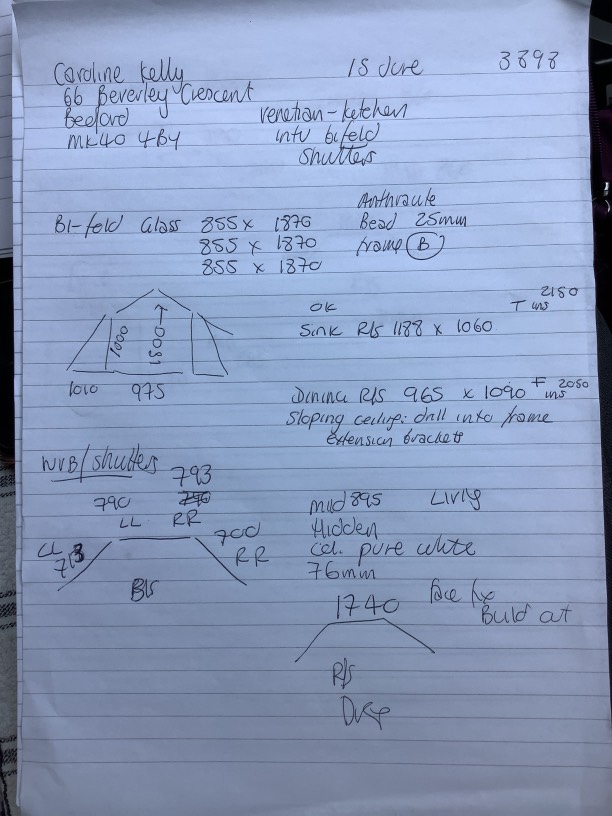 Caroline Kelly 15 June 3898
66 Beverley Crescent
Bedford venetian - kitchen
MK40 4BY intu bifold
shutters
Anthracite
Bi-fold Glass 855 x 1870 Bead 25mm
855 x 1870 frame B
855 x 1870
1000 1800
1010 975
OK T ins 2150
Sink R/S 1188 x 1060
Dining R/S 965 x 1090 F ins 2050
Sloping ceiling: drill into frame
extension brackets
WVB/shutters
793
790
LL RR
LL 713
700
RR
B/S
mid 895 Living
Hidden
Col. pure white
76mm
1740 face fix
Build out
R/S